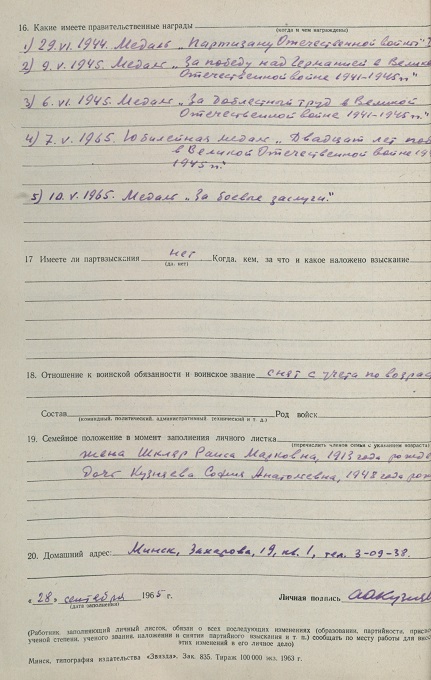 16. Какие имеете правительственные награды
(когда и чем награждены)
1) 29.VI.1944. Медаль „Партизану Отечественной войны"
2) 9.V.1945. Медаль „За победу над Германией в Велико
Отечественной войне 1941-1945гг"
3) 6.VI.1945. Медаль „За доблестный труд в Великой
Отечественной войне 1941-1945гг."
4) 7.V.1965. Юбилейная медаль „Двадцать лет поб
в Великой Отечественной войне 194
1945гг."
5) 10.V.1965. Медаль „За боевые заслуги."
17 Имеете ли партвзыскания нет Когда, кем, за что и какое наложено взыскание
(да, нет)
18. Отношение к воинской обязанности и воинское звание снят с учета по возрас
Состав Род войск
(командный, политический, административный, технический и т. д.)
19. Семейное положение в момент заполнения личного листка
(перечислить членов семьи с указанием возраста)
жена Шкляр Раиса Марковна, 1913 года рожде
дочь Кузняева София Анатольевна, 1948 года рож
20. Домашний адрес: Минск, Захарова, 19, кв. 1, тел. 3-09-38.
„28" сентября 1965 г. Личная подпись
(дата заполнения)
(Работник, заполняющий личный листок, обязан о всех последующих изменениях (образовании, партийности, присво
ученой степени, ученого звания, наложении и снятии партийного взыскания и т. п.) сообщать по месту работы для внес
этих изменений в его личное дело)
Минск, типография издательства «Звязда». Зак. 835. Тираж 100 000 экз. 1963 г.